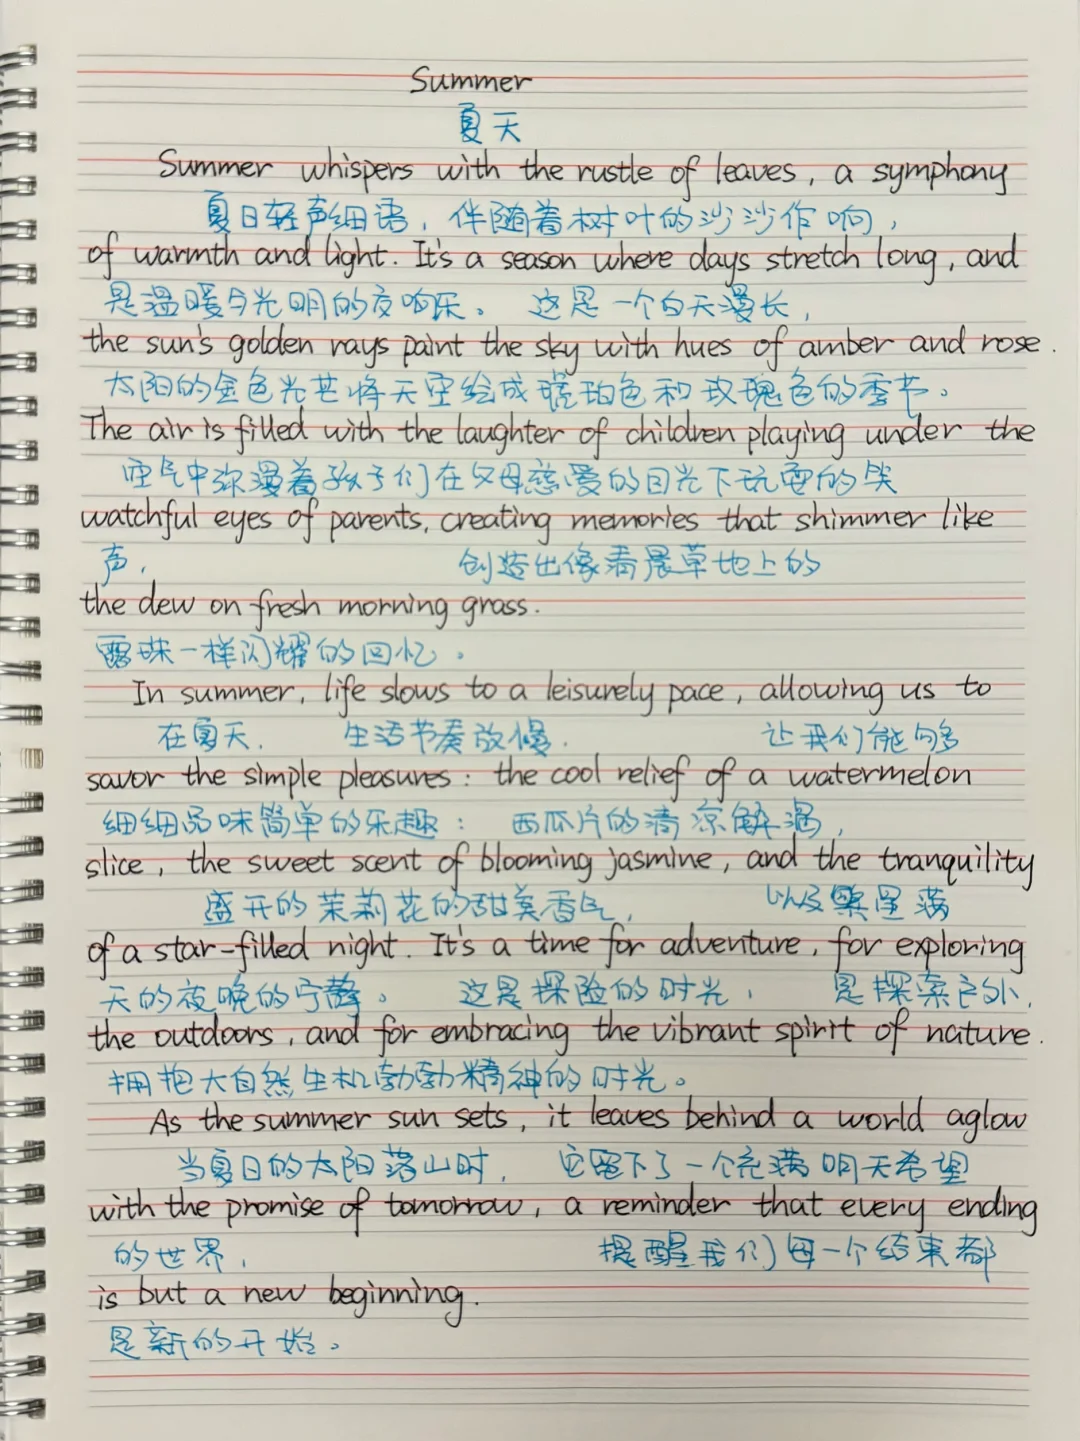 Summer
夏天
Summer whispers with the rustle of leaves, a symphony
夏日轻声细语，伴随着树叶的沙沙作响，
of warmth and light. It's a season where days stretch long, and
是温暖与光明的交响乐。 这是一个白天漫长，
the sun's golden rays paint the sky with hues of amber and rose.
太阳的金色光芒将天空绘成琥珀色和玫瑰色的季节。
The air is filled with the laughter of children playing under the
空气中弥漫着孩子们在父母慈爱的目光下玩耍的笑
watchful eyes of parents, creating memories that shimmer like
声， 创造出像清晨草地上的
the dew on fresh morning grass.
露珠一样闪耀的回忆。
In summer, life slows to a leisurely pace, allowing us to
在夏天， 生活节奏放慢， 让我们能够
savor the simple pleasures: the cool relief of a watermelon
细细品味简单的乐趣： 西瓜片的清凉解渴，
slice, the sweet scent of blooming jasmine, and the tranquility
盛开的茉莉花的甜美香气， 以及繁星满
of a star-filled night. It's a time for adventure, for exploring
天的夜晚的宁静。 这是探险的时光， 是探索户外，
the outdoors, and for embracing the vibrant spirit of nature.
拥抱大自然生机勃勃精神的时光。
As the summer sun sets, it leaves behind a world aglow
当夏日的太阳落山时， 它留下了一个充满明天希望
with the promise of tomorrow, a reminder that every ending
的世界， 提醒我们每一个结束都
is but a new beginning.
是新的开始。